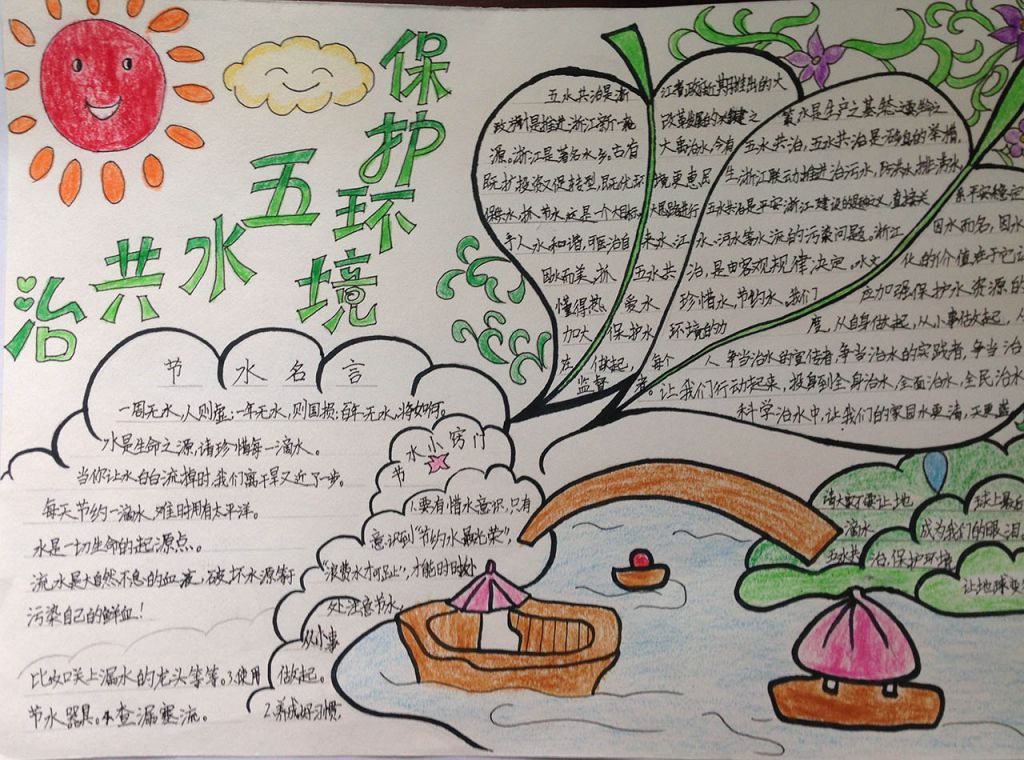 保护环境
五水共治
节水名言
一周无水,人则虚;一年无水,则国损;百年无水,将如何。
水是生命之源,请珍惜每一滴水。
当你让水白白流掉时,我们离干旱又近了一步。
每天节约一滴水,难时拥有太平洋。
水是一切生命的起源点。
流水是大自然不息的血液,破坏水源等于
污染自己的鲜血!
节水小窍门
1.要有惜水意识,只有
意识到“节约水最光荣”,
“浪费水才可耻”,才能时时处
处注意节水,
从小事
做起。
2.养成好习惯,
比如咲上漏水的龙头等等。3.使用
节水器具。4.查漏塞流。
五水共治是浙江省政府近期推出的大
政方针,是推进浙江新一轮改革发展的关键之
源。浙江是著名水乡。古有大禹治水,今有
既扩投资又促转型,既优环境更惠民
保供水,抓节水,这是一个大目标,
于人水和谐,可医治自来水、江水、河水等水流的污染问题。浙江因水而名,因水
因水而美,抓五水共治,是由客观规律决定。水文化的价值在于它让
懂得热爱水、珍惜水、节约水。我们应加强保护水资源的
加大保护水环境的力度,从自身做起,从小事做起,
在做起,每个人争当治水的宣传者,争当治水的实践者,争当治
监督者。让我们行动起来,投身到全身治水,全面治水,全民治水
科学治水中,让我们的家园水更清,天更蓝
水是生产之基
五水共治,五水共治是
生,浙江联动推进治污水,防洪水,排涝水
五水共治是平安浙江建设的
直接关系平安稳定
请大家不要让地球上最后
一滴水成为我们的眼泪
五水共治,保护环境
让地球变